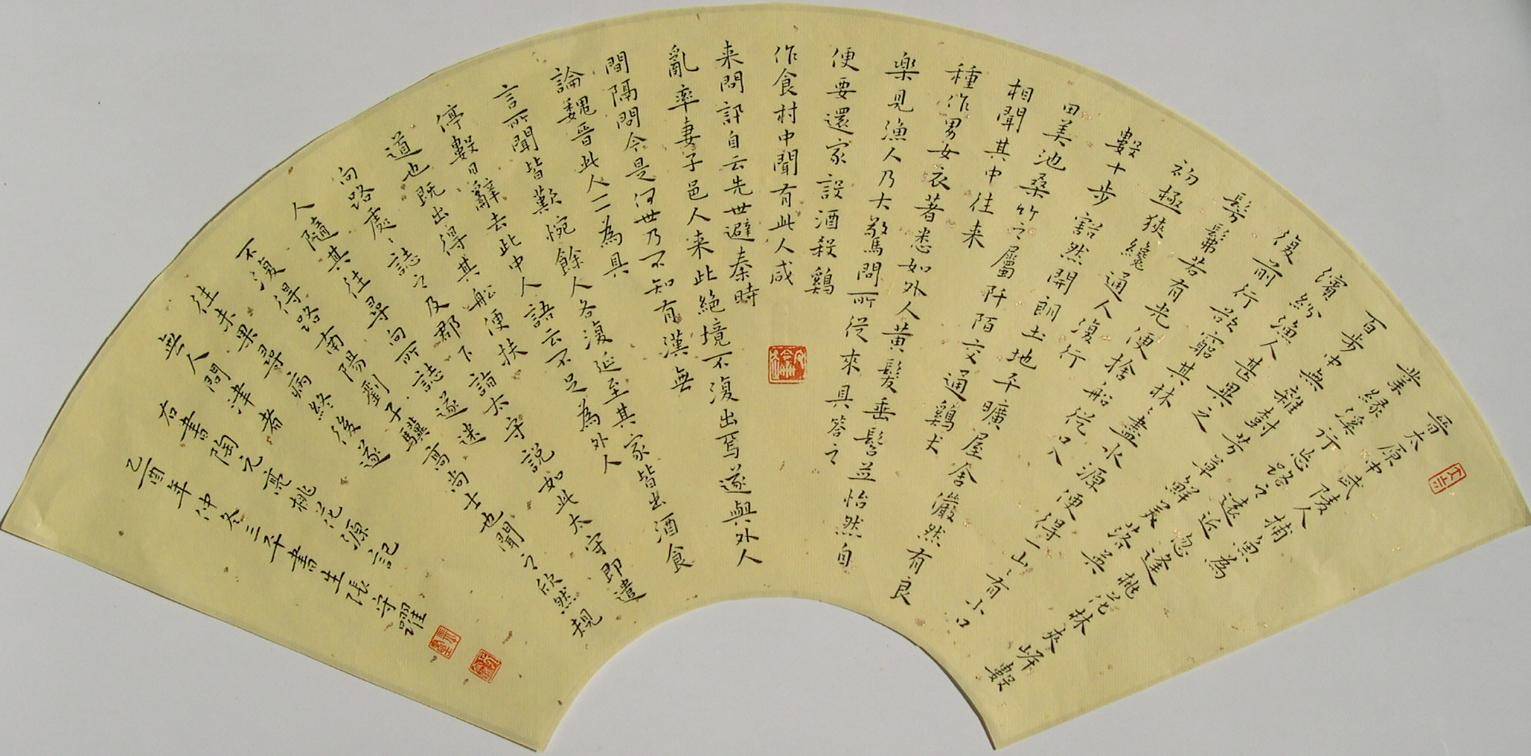 晋太原中武陵人捕魚為
業緣溪行忘路之遠近忽逢桃花林夾岸數
百步中無雜封芳草鮮美落英
繽紛漁人甚異之
復前行欲窮其林〻盡水源便得一山〻有小口
髣髴若有光便捨船從口入
初極狹纔通人復行
數十步豁然開朗土地平曠屋舍儼然有良
田美池桑竹之屬阡陌交通鷄犬
相聞其中往来
種作男女衣著悉如外人黄髮垂髫並怡然自
樂見漁人乃大驚問所從來具答之
便要還家設酒殺鷄
作食村中聞有此人咸
来問訊自云先世避秦時
亂率妻子邑人来此絶境不復出焉遂與外人
間隔問今是何世乃不知有漢無
論魏晉此人一一為具
言所聞皆歎惋餘人各復延至其家皆出酒食
停數日辭去此中人語云不足為外人
道也既出得其船便扶
向路處〻誌之及郡下詣太守説如此太守即遣
人隨其往尋向所誌遂迷
不復得路南陽劉子驥高尚士也聞之欣然規
往未果尋病終後遂
無人問津者
右書陶元亮桃花源記
乙酉年仲冬三平書生張守